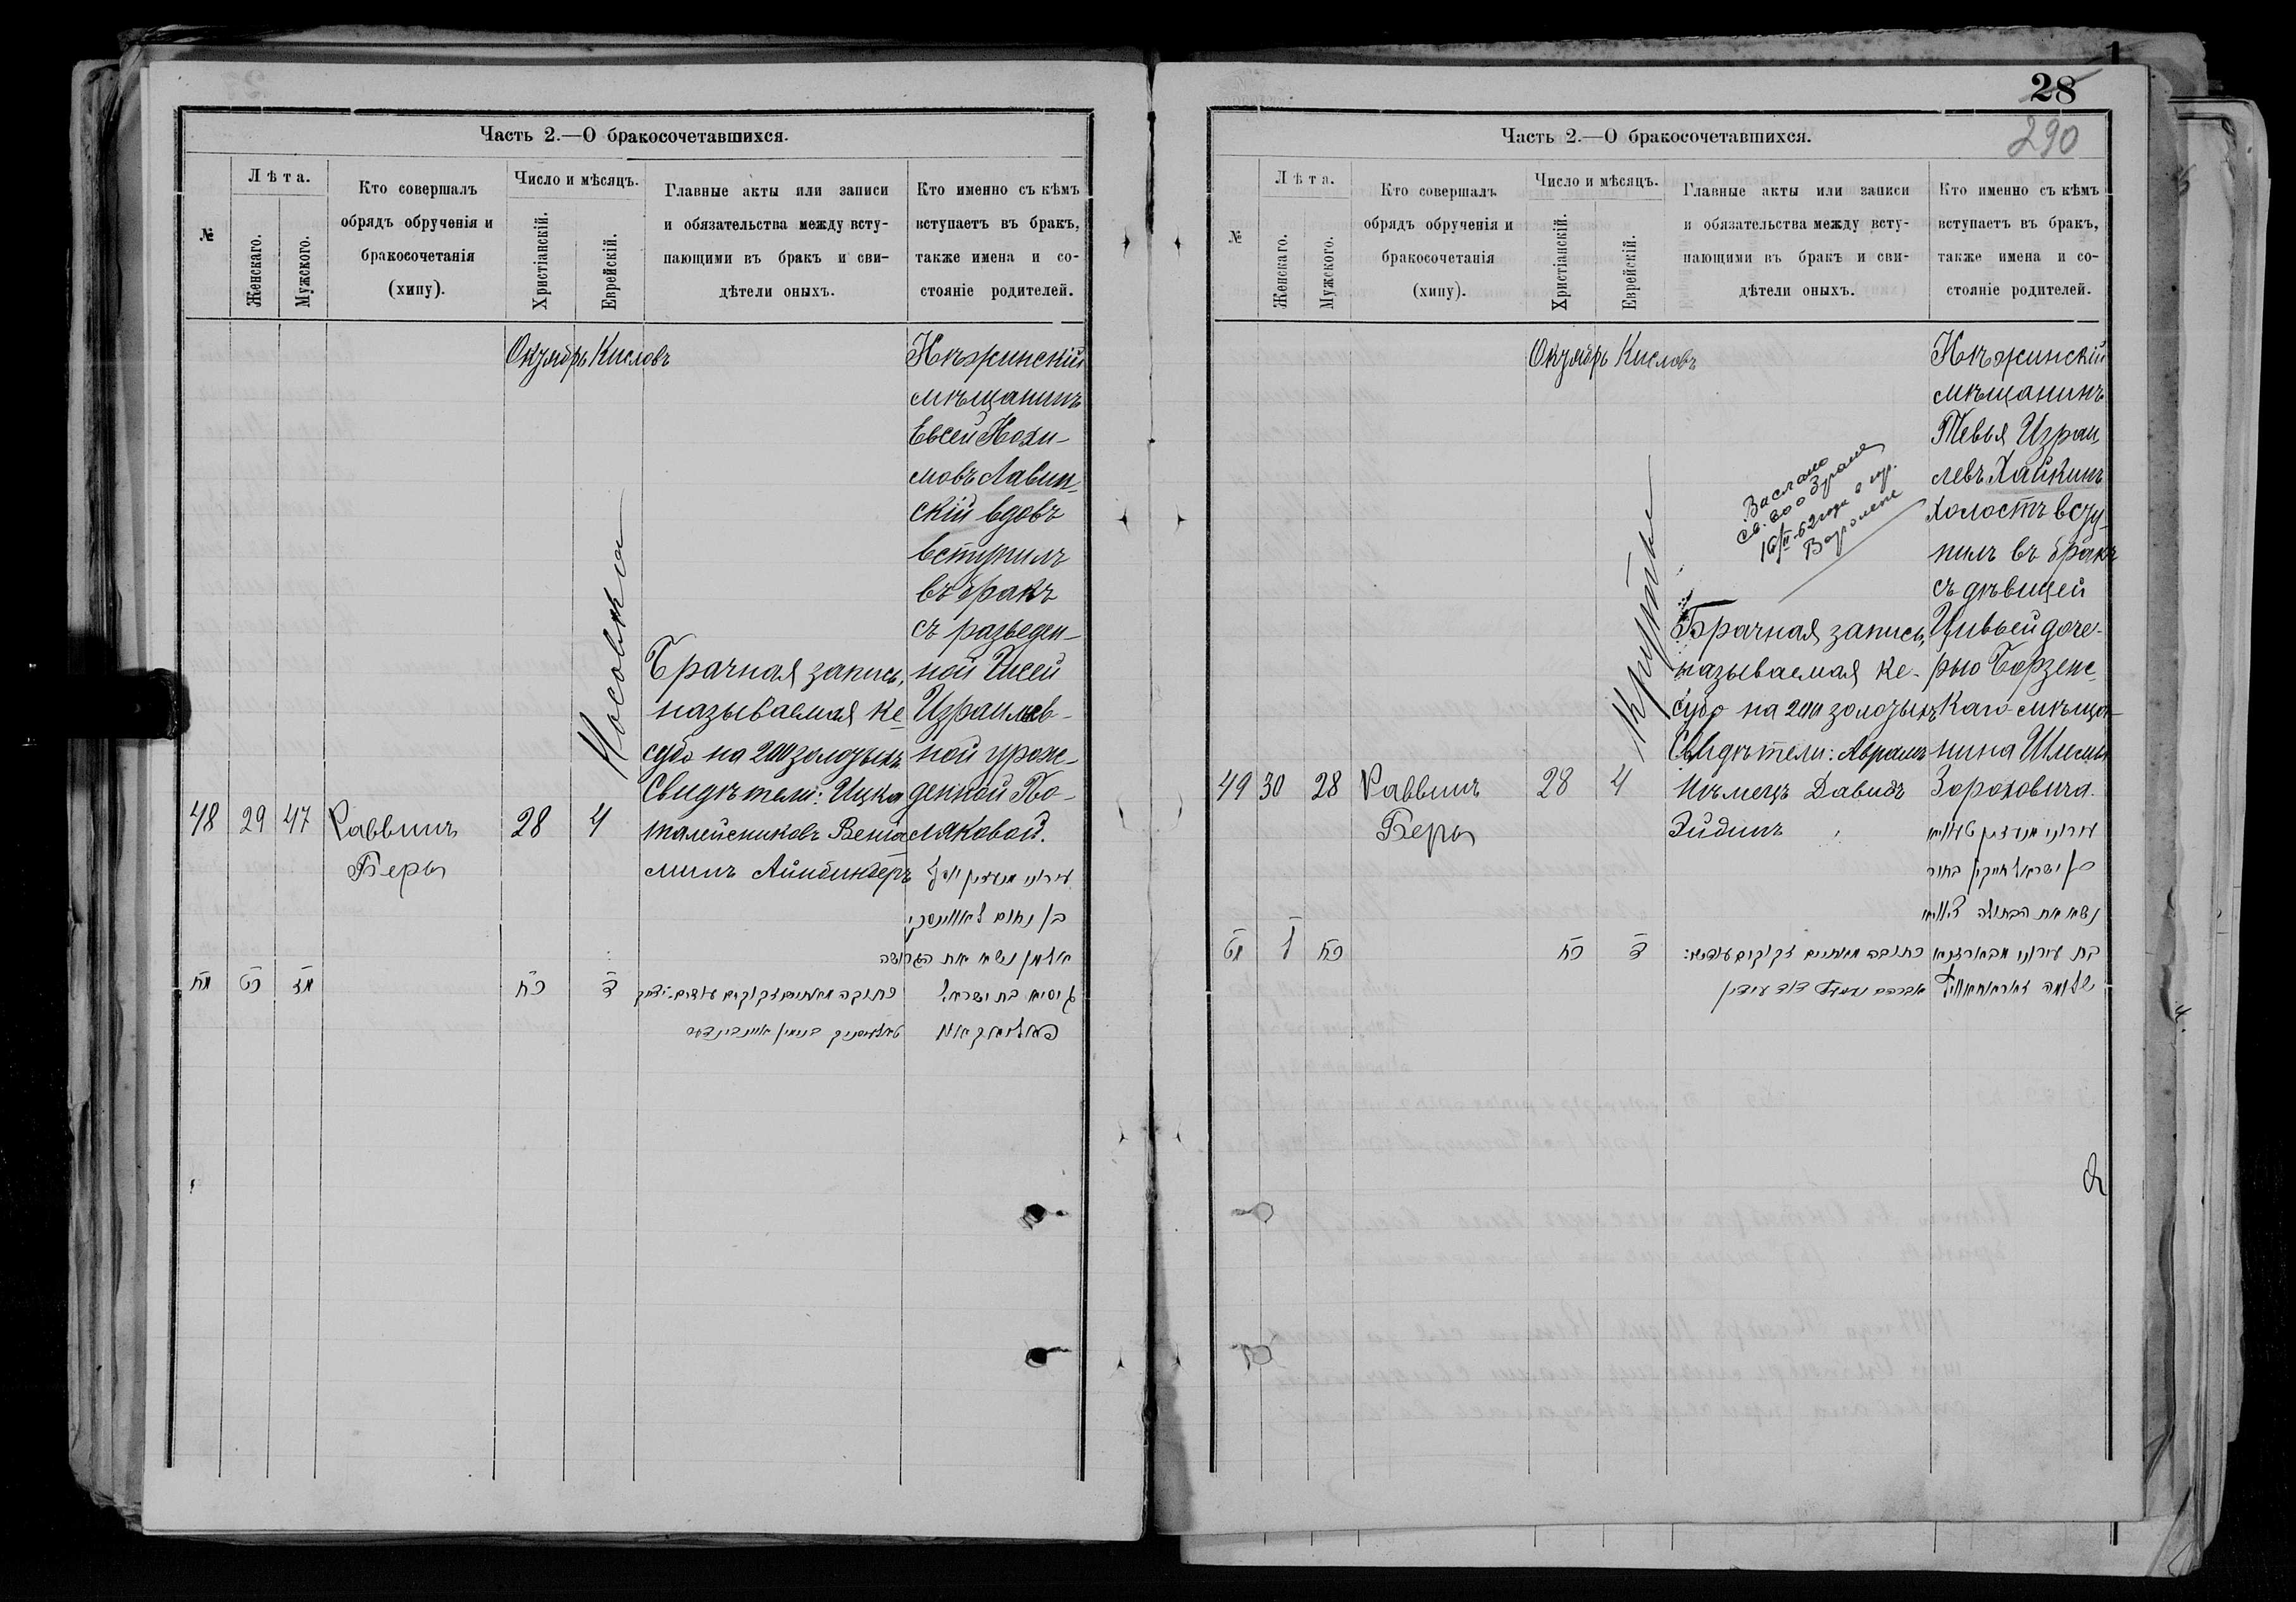 Часть 2.—О бракосочетавшихся.
№
Лѣта.
Женскаго.
Мужского.
Кто совершалъ
обрядъ обрученія и
бракосочетанія
(хипу).
Число и мѣсяцъ.
Христіанскій.
Еврейскій.
Главные акты или записи
и обязательства между всту-
пающими въ бракъ и сви-
дѣтели оныхъ.
Кто именно съ кѣмъ
вступаетъ въ бракъ,
также имена и со-
стояніе родителей.
48
29
47
Раввинъ
Беръ
Октябрь
28
Кисловъ
4
Носовка
Брачная запись,
называемая ке
субо на 200 золотыхъ
Свидѣтели: Ицка
талейсниковъ Веніа
минъ Айнбиндеръ
Нѣжинскій
мѣщанинъ
Евсей Нохи-
мовъ Лавин-
скій вдовъ
вступилъ
въ бракъ
съ разведен-
ной
Израилев-
ной урож-
денной По-
ляковой.
בן נחום לאווינסקי
אלמן נשא את הגרושה
מח
כט
מז
כח
ד
בת ישראל
28
290
Часть 2.—О бракосочетавшихся.
№
Лѣта.
Женскаго.
Мужского.
Кто совершалъ
обрядъ обрученія и
бракосочетанія
(хипу).
Число и мѣсяцъ.
Христіанскій.
Еврейскій.
Главные акты или записи
и обязательства между всту-
пающими въ бракъ и сви-
дѣтели оныхъ.
Кто именно съ кѣмъ
вступаетъ въ бракъ,
также имена и со-
стояніе родителей.
49
30
28
Раввинъ
Беръ
Октябрь
28
Кисловъ
4
Заслано
Брачная запись,
называемая ке-
субо на 200 золотыхъ
Свидѣтели: Аврамъ
Нѣмецъ Давидъ
Эйдинъ
Нѣжинскій
мѣщанинъ
Тевья Израи
левъ Хайкинъ
холостъ всту-
пилъ въ бракъ
съ дѣвицей
Цивьей доче-
рью Борзенс-
каго мѣща-
нина Шлемы
Зороховича.
בן ישראל חייקין בחור
נשא את הבתולה
מט
ל
כח
כח
ד